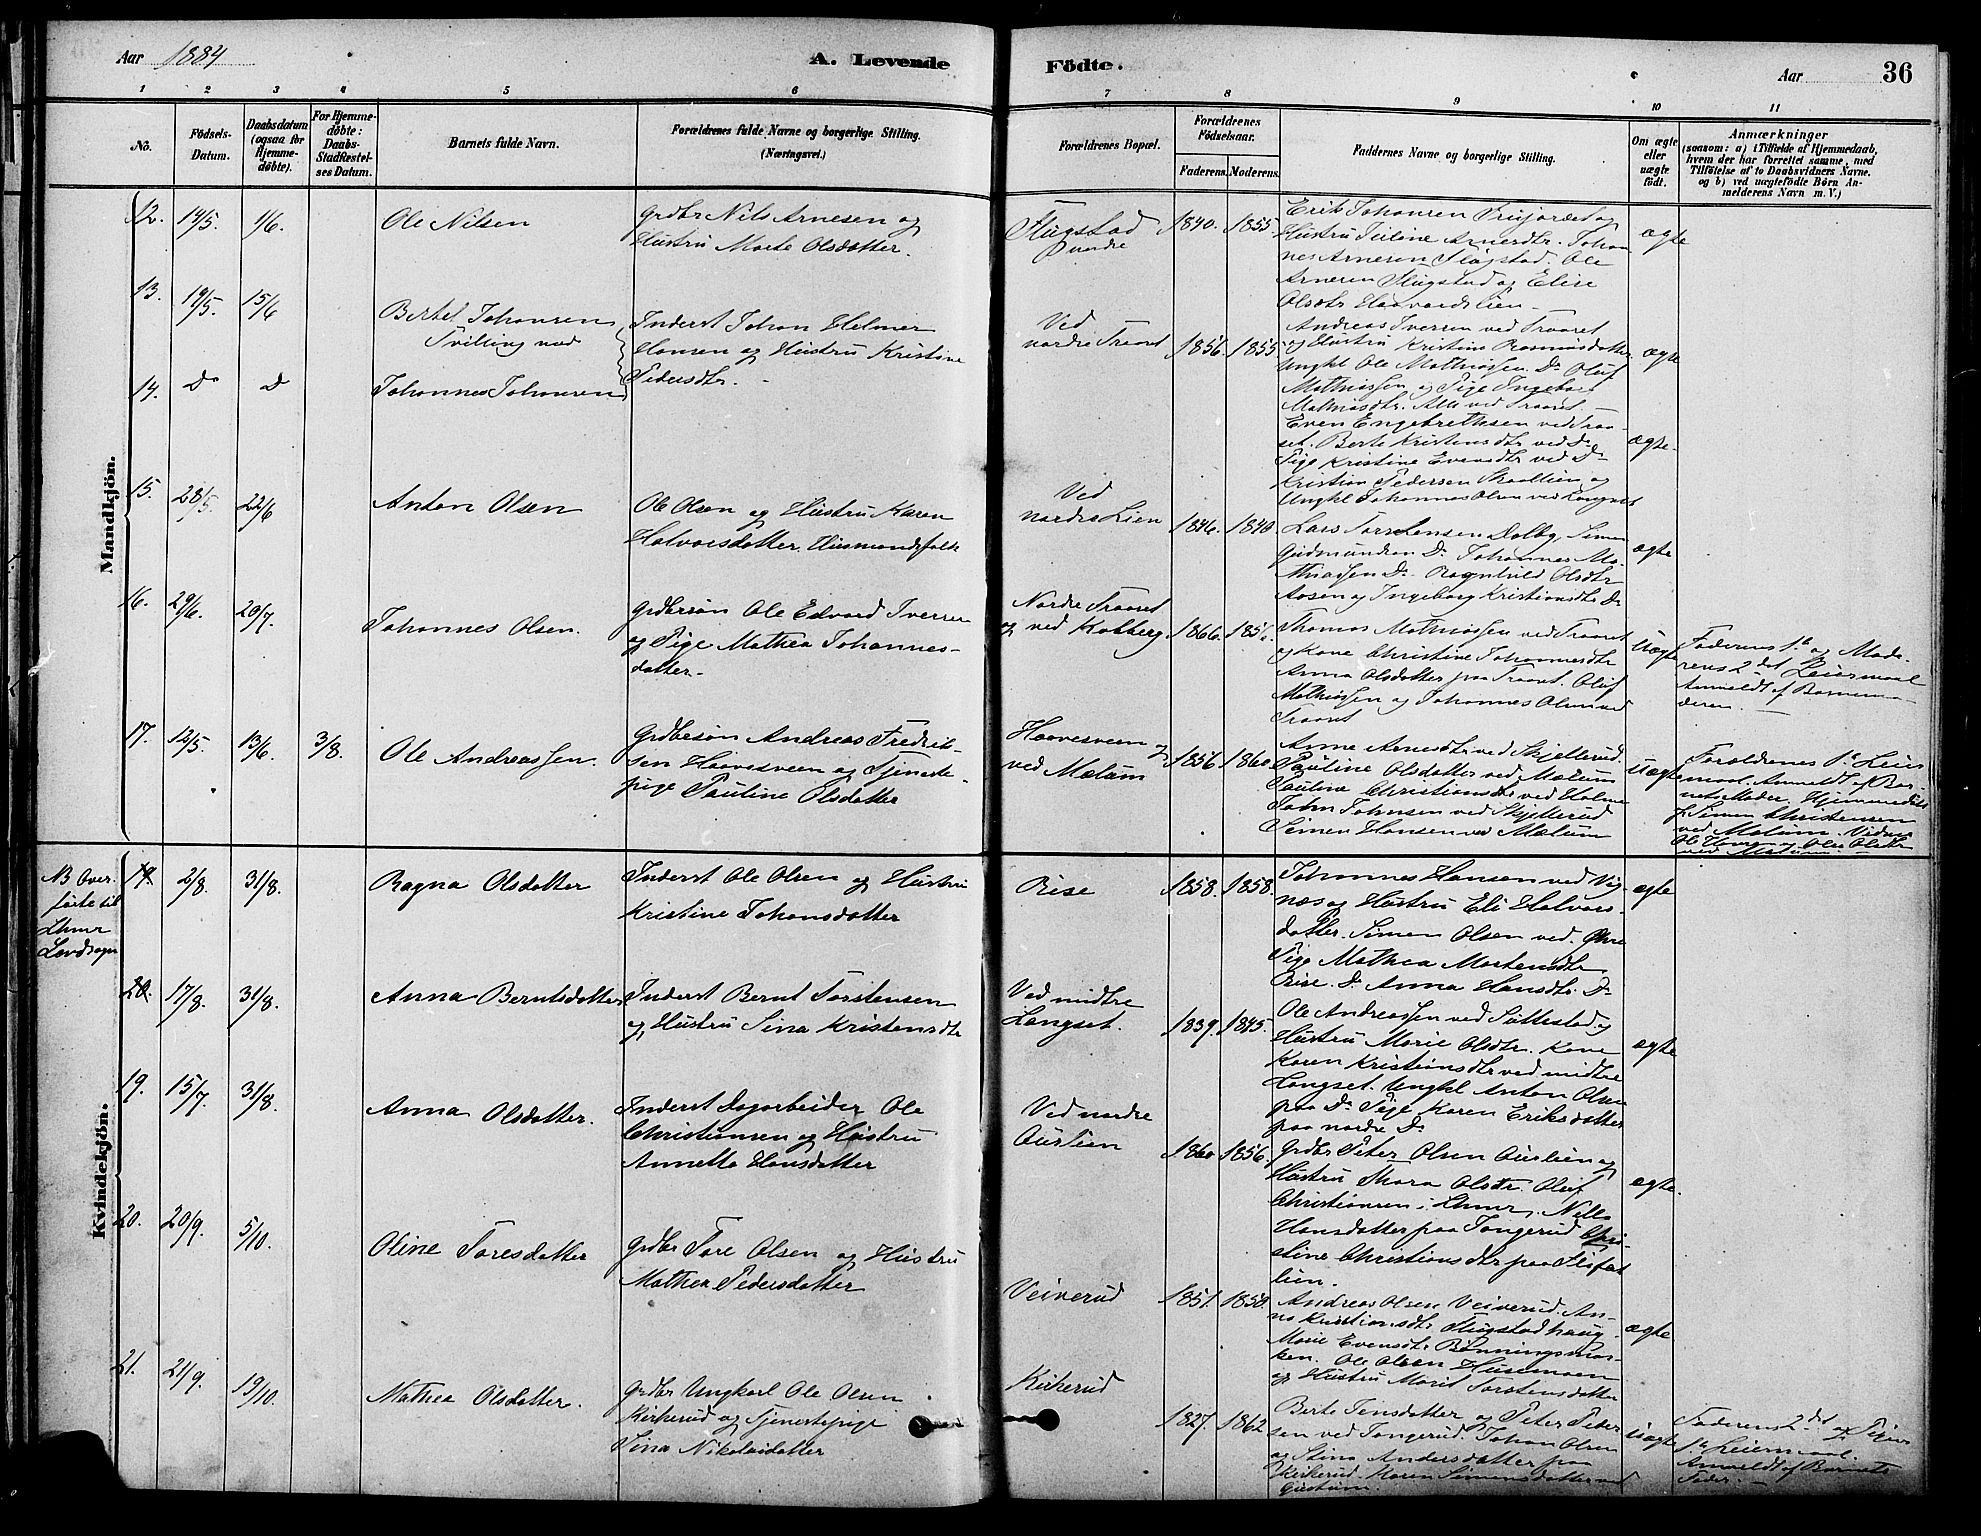 Aar 1884
A. Levende
Födte.
Aar
36
1 2 3 4 5 6 7 8 9 10 11
No.
Födsels-
Datum.
Daabsdatum
(ogsaa for
Hjemme-
döbte).
For Hjemme-
döbte:
Daabs-
Stadfæstel-
ses Datum.
Barnets fulde Navn.
Forældrenes fulde Navne og borgerlige Stilling.
(Næringsvei.)
Forældrenes Bopæl.
Forældrenes
Födselsaar.
Faderens. Moderens.
Faddernes Navne og borgerlige Stilling.
Om ægte
eller
uægte
födt.
Anmærkninger
(saasom: a) i Tilfælde af Hjemmedaab,
hvem der har forrettet samme, med
Tilföielse af to Daabsvidners Navne.
og b) ved uægtefödte Börn An-
melderens Navn m. V.)
Mandkjön.
12. 14/5. 1/6. Ole Nilsen
Grdbr Nils Arnesen og
Hustru Marte Olsdatter.
Flugstad
nordre
1840. 1855.
Erik Johansen og
Hustru Arnesdtr. Johan
nes Arnesen Flugstad. Ole
Arnesen Flugstad og Elise
Olsdtr Haavardslien
ægte
13. 19/5. 15/6 Bertel Johansen
Tvilling med
Inderst Johan Helmer
Hansen og Hustru Kristine
Pedersdtr.
Ved
nordre Traaset
1856. 1855
Andreas Iversen ved Traaset
og Hustru Kristine Rasmusdatter
Ungkl Ole Mathiassen Do Oluf
Mathiassen og Pige Ingeborg
Mathiasdtr. Alle ved Traaset
ægte
14. Do Do Johannes Johansen
Even Engebrethsen ved Traa-
set. Berte Kristensdtr ved Do
Pige Kristine Evensdtr ved Do
Kristian Pedersen Skaallien og
Ungkl Johannes Olsen ved Langset
ægte
15. 28/5. 22/6 Anton Olsen
Ole Olsen og Hustru Karen
Halvorsdatter. Husmandsfolk
Ved
nordre Lien
1846. 1840
Lars Torstensen Dalby, Simen
Gudmundsen Do Johannes Ma-
thiassen Do Ragnhild Olsdtr
Aasen og Ingeborg Kristiansdtr Do
ægte
16. 29/6. 20/7. Johannes Olsen.
Grdbrsøn Ole Edvard Iversen
og Pige Mathea Johannes-
datter.
Nordre Traaset
og ved Kobberg
1866.
Thomas Mathiassen ved Traaset
og Kone Christine Johannesdtr
Anna Olsdatter paa Traaset. Oluf
Mathiassen og Johannes Olsen ved
Traaset
Uægte
Faderens 1ste og Mode-
rens 2det Leiermaal
Anmeldt af Barnefa-
deren.
17. 12/5. 13/6. 3/8. Ole Andreassen.
Grdbrsøn Andreas Fredrik-
sen Haavesveen og Tjeneste-
pige Pauline Olsdatter
Haavesveen og
ved Mælum
1856. 1860
Anne Arnesdtr ved Skjellerud.
Pauline Olsdatter ved Mælum
Paulina Christiansdtr ved Holme
John Johnsen ved Skjellerud
Simen Hansen ved Mælum
Uægte
Foreldrenes 1ste Leier
maal. Anmeldt af Bar-
nets Moder. Hjemmedøbt
af Simen Christensen
ved Mælum. Vidner
Kvindekjön.
NB Over-
førte til
Lhmr
Landsogn
2/8. 31/8. Ragna Olsdatter
Inderst Ole Olsen og Hustru
Kristine Johansdatter
Rise
1858. 1858.
Johannes Hansen ved Vig-
næs og Hustru Eli Halvors-
datter. Simen Olsen ved
Pige Mathea Mortensdtr
Rise. Do Anna Hansdtr. Do
ægte
20. 17/8. 31/8. Anna Berntsdatter
Inderst Bernt Torstensen
og Hustru Sina Kristensdtr
Ved midtre
Langset.
1839. 1845.
Ole Andreassen ved Sattestad og
Hustru Marie Olsdtr. Kone
Karen Kristiansdtr ved midtre
Langset. Ungkl Anton Olsen
paa Do Pige Karen Eriksdatter
paa nordre Do
ægte
19. 15/7. 31/8. Anna Olsdatter.
Inderst Dagarbeider Ole
Christiansen og Hustru
Annette Hansdatter
Ved nordre
Aurlien
1860 1856.
Grdbr Peter Olsen Aurlien og
Hustru Mara Olsdtr. Oluf
Christiansen i Lhmr. Nille
Hansdatter paa Tangerud Chri-
stine Christiansdtr paa
lien.
ægte.
20. 20/9. 5/10. Oline Toresdatter
Grdbr Tore Olsen og Hustru
Mathea Pedersdatter
Veiverud
1851. 1850
Andreas Olsen Veiverud. An-
na Kristiansdtr Flugstadhaug
Marie Evensdtr Rønningsmar-
ken. Ole Olsen Husemoen
og Hustru Marit Torstensdatter
ægte
21. 21/9. 19/10. Mathea Olsdatter.
Grdbr Ungkarl Ole Olsen
Kirkerud og Tjenestepige
Sina Nikolaidatter
Kirkerud
1827. 1862
Berte Jensdatter og Peter Peder
sen ved Tangerud. Johan Olsen
og Stina Andersdatter paa
Kirkerud. Karen Simensdatter ved
Uægte
Faderens 2det og Pigens
1ste Leiermaal.
Anmeldt af Barnets
Fader.